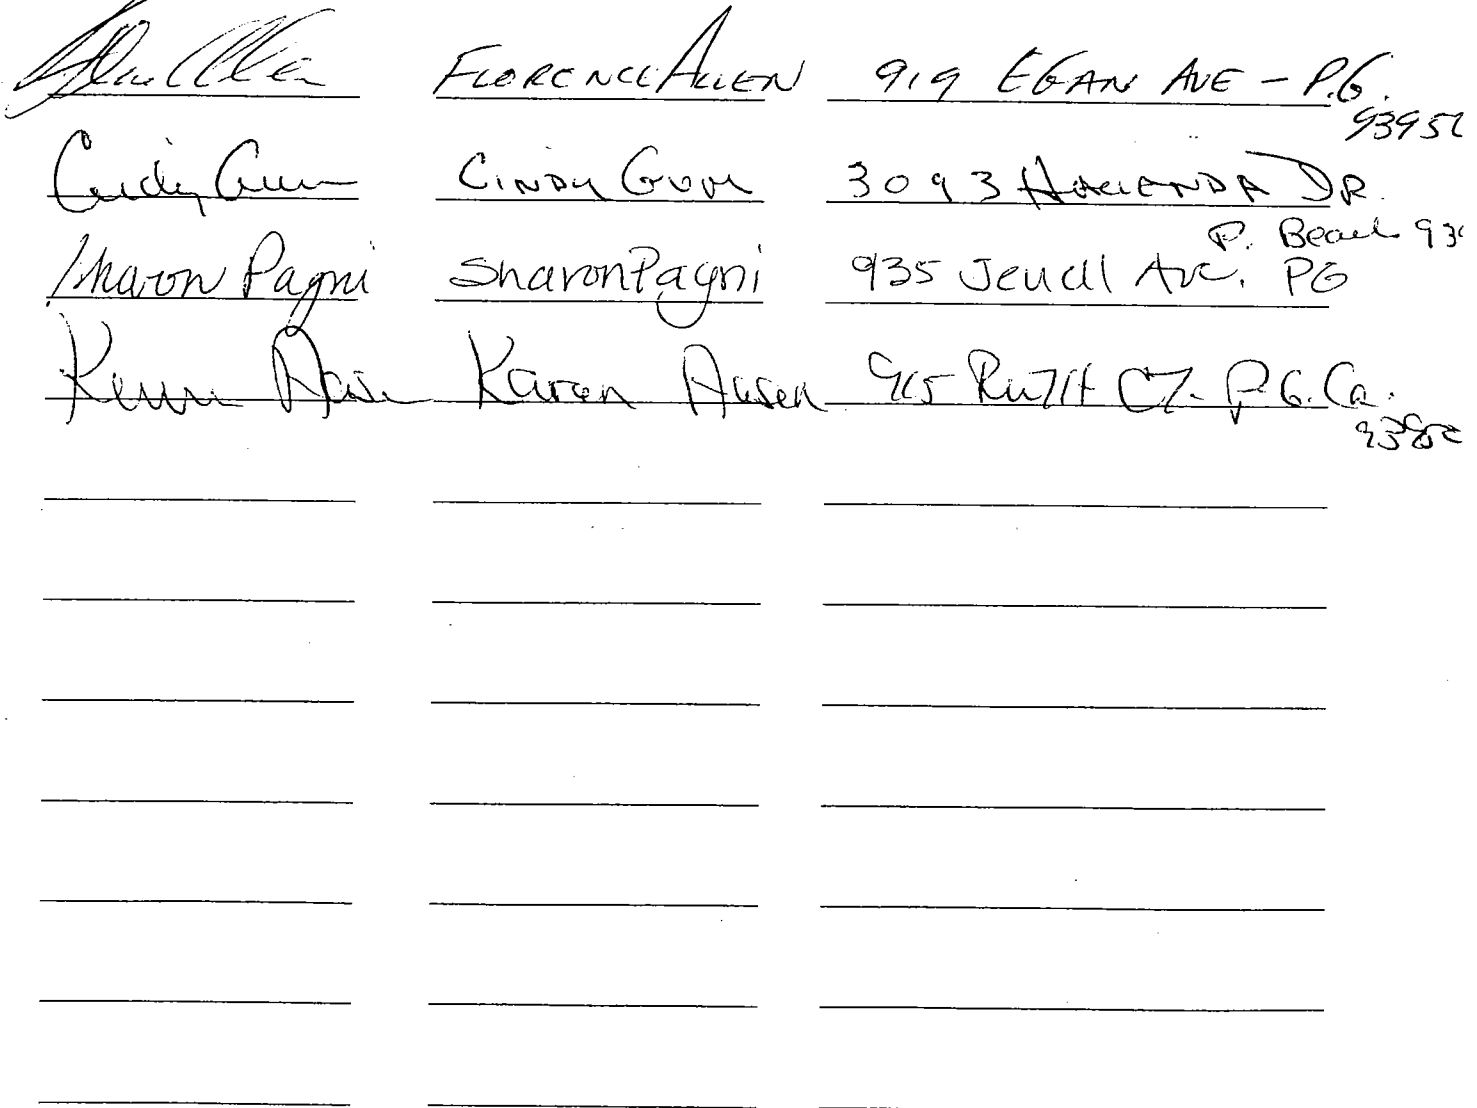 Florence Allen 919 EGAN AVE - P.G.
Cindy Gum CINDY GUM 3093 HACIENDA DR.
P. Beach 93
Sharon Pagni Sharon Pagni 935 Jewell Ave. PG
Karen Karen 965 Ruth Ct. P.G. Ca.